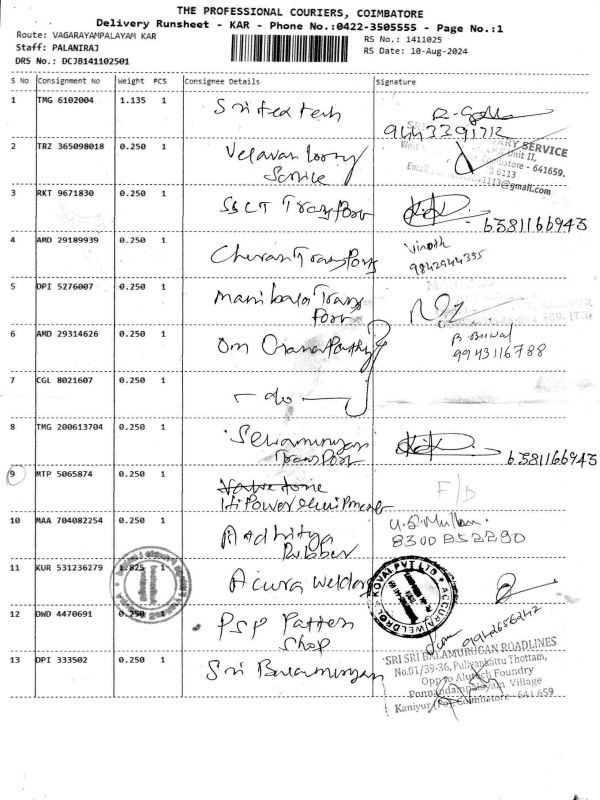 THE PROFESSIONAL COURIERS, COIMBATORE
Delivery Runsheet - KAR - Phone No.:0422-3505555 - Page No.:1
Route: VAGARAYAMPALAYAM KAR
RS No.: 1411025
Staff: PALANIRAJ
RS Date: 10-Aug-2024
DRS No.: DCJB141102501
S No Consignment No Weight PCS Consignee Details Signature
1 TMG 6102004 1.135 1
9443291712
2 TRZ 365098018 0.250 1 Velavan Lorry
Service
Unit II,
Coimbatore - 641659.
3 RKT 9671830 0.250 1 SSCT Transport 6381166943
4 AMD 29189939 0.250 1 Cheran Transports Vinoth
9842944395
5 DPI 5276007 0.250 1 Manibala Trans
Port
6 AMD 29314626 0.250 1 Om Ganapathy
9943116788
7 CGL 8021607 0.250 1 - do -
8 TMG 200613704 0.250 1 Selvamurugan
Transport 6381166943
9 MTP 5065874 0.250 1
F/D
10 MAA 704082254 0.250 1 Aadhitya
Rubber
11 KUR 531236279 1.825 1 Acura Weldrol
12 DWD 4470691 0.250 1 PSP Pattern
Shop
13 DPI 333502 0.250 1 Sri Balamurugan
SRI SRI BALAMURUGAN ROADLINES
No.01/39-36, Puliyankattu Thottam,
Opp to Alutech Foundry
Ponnandampalayam Village
Kaniyur (Po), Coimbatore - 641 659